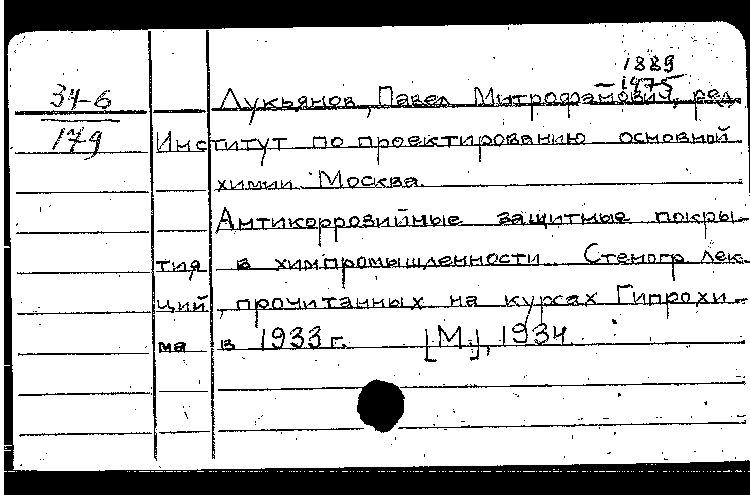 1889
34-6 Лукьянов, Павел Митрофанович, ред.
-1975
179 Институт по проектированию основной
химии. Москва.
Антикоррозийные защитные покры-
тия в химпромышленности. Стеногр. лек-
ций, прочитанных на курсах Гипрохи-
ма в 1933 г. [М.], 1934